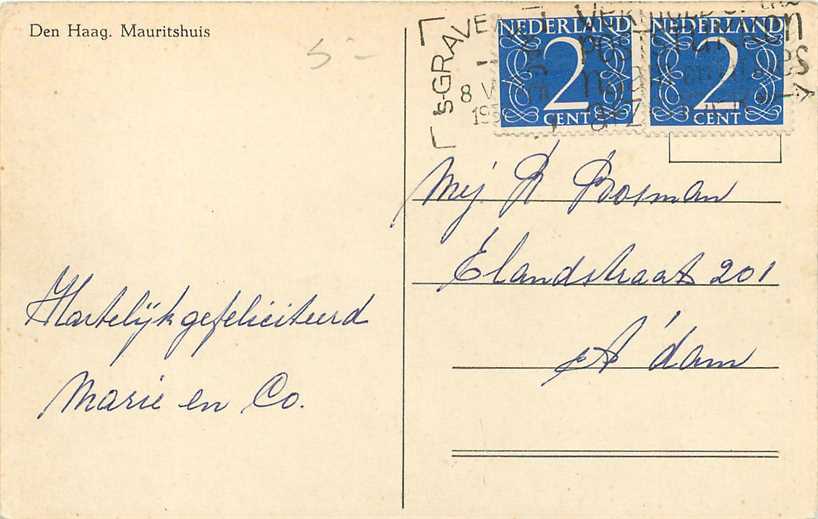 Den Haag. Mauritshuis
5-
's-GRAVE
8 V
195
NEDERLAND
2
CENT
NEDERLAND
2
CENT
Mej. R Bosman
Elandstraat 201
A'dam
Hartelijk gefeliciteerd
Marie en Co.